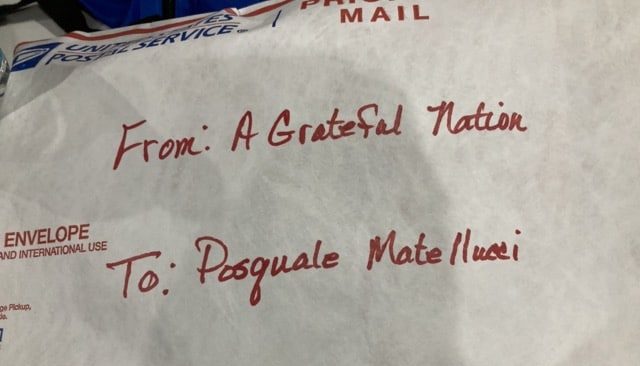 UNITED STATES
POSTAL SERVICE®
PRIORITY
MAIL
From: A Grateful Nation
ENVELOPE
AND INTERNATIONAL USE
To: Posquale Matellucci
Pickup,